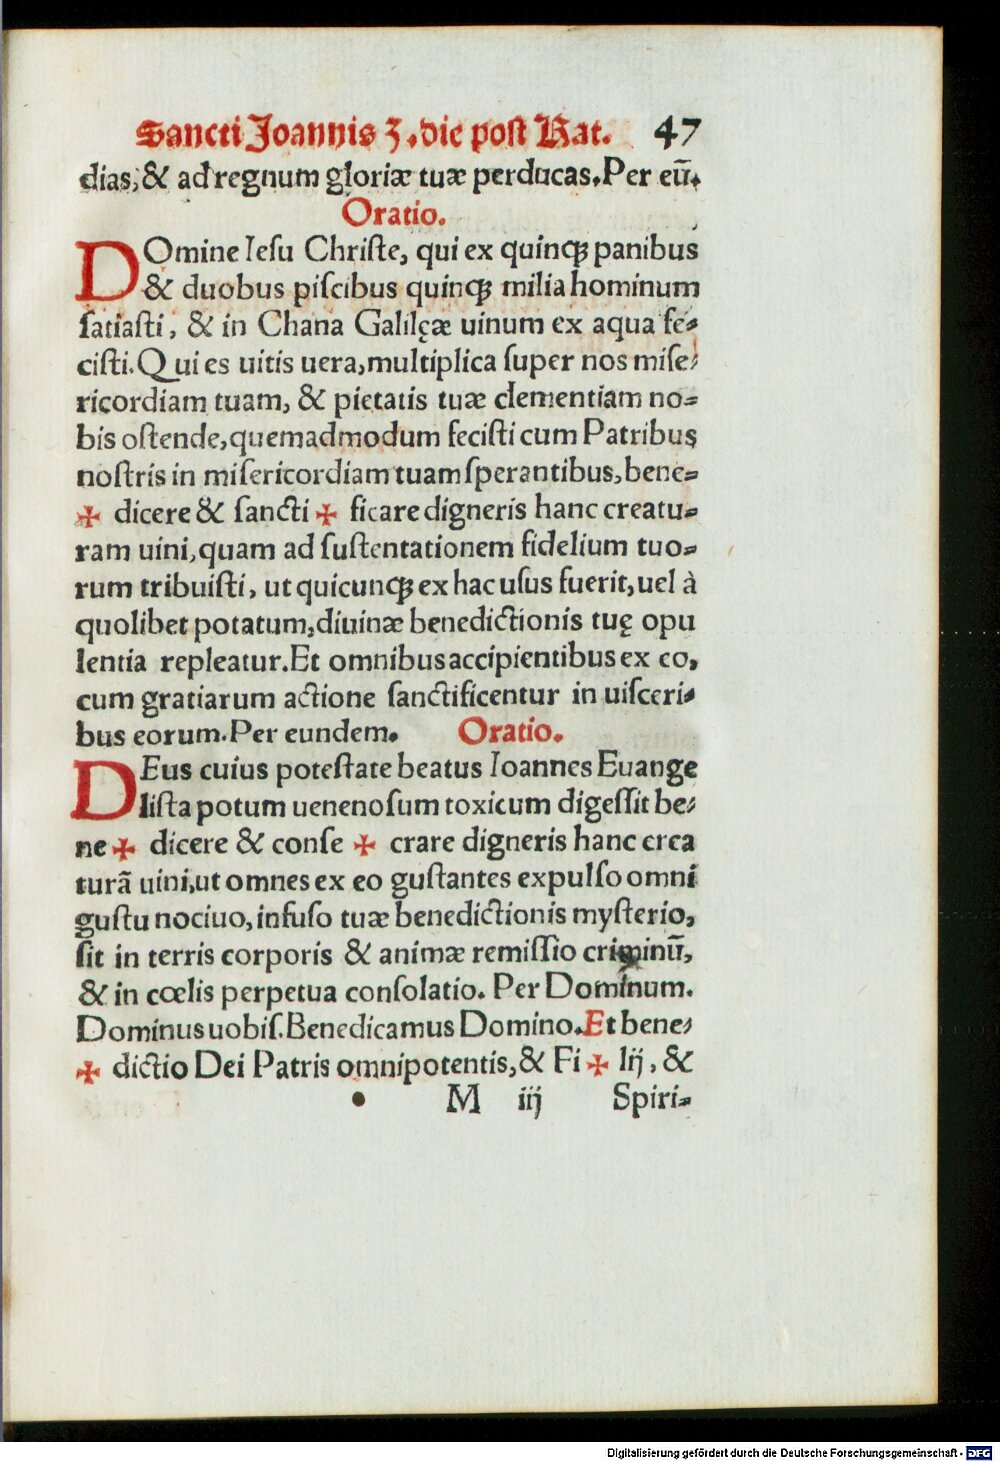 Sancti Joannis 3. die post Nat. 47
dias, & ad regnum gloriæ tuæ perducas. Per eū.
Oratio.
DOmine Iesu Chriſte, qui ex quinqꝫ panibus
& duobus piſcibus quinqꝫ milia hominum
ſatiaſti, & in Chana Galilęæ uinum ex aqua fe-
ciſti. Qui es uitis uera, multiplica ſuper nos miſe-
ricordiam tuam, & pietatis tuæ clementiam no-
bis oſtende, quemadmodum feciſti cum Patribus
noſtris in miſericordiam tuam ſperantibus, bene-
✠ dicere & ſancti ✠ ficare digneris hanc creatu-
ram uini, quam ad ſuſtentationem fidelium tuo-
rum tribuiſti, ut quicunqꝫ ex hac uſus fuerit, uel à
quolibet potatum, diuinæ benedictionis tuę opu
lentia repleatur. Et omnibus accipientibus ex eo,
cum gratiarum actione ſanctificentur in uiſceri-
bus eorum. Per eundem. Oratio.
DEus cuius poteſtate beatus Ioannes Euange
liſta potum uenenoſum toxicum digeſſit be-
ne ✠ dicere & conſe ✠ crare digneris hanc crea
turā uini, ut omnes ex eo guſtantes expulſo omni
guſtu nociuo, infuſo tuæ benedictionis myſterio,
ſit in terris corporis & animæ remiſſio criminū,
& in cœlis perpetua conſolatio. Per Dominum.
Dominus uobiſ. Benedicamus Domino. Et bene-
✠ dictio Dei Patris omnipotentis, & Fi ✠ lij, &
M iij Spiri-
Digitalisierung gefördert durch die Deutsche Forschungsgemeinschaft - DFG